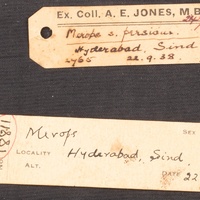 Ex. Coll. A. E. JONES, M.B
Merops s. persicus.
Hyderabad, Sind
2765 22.9.38.
Merops SEX
LOCALITY Hyderabad, Sind
ALT. DATE 22